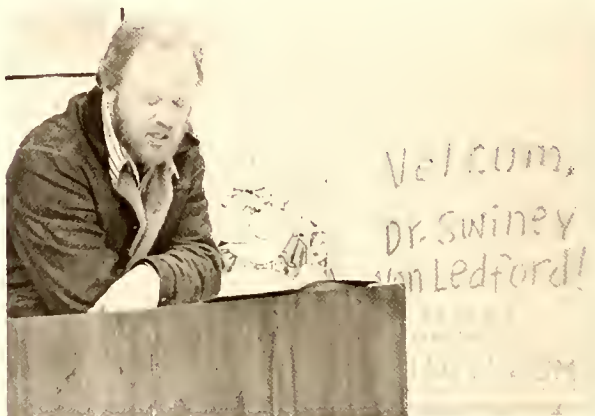 Velcum,
Dr. Swiney
von Ledford!